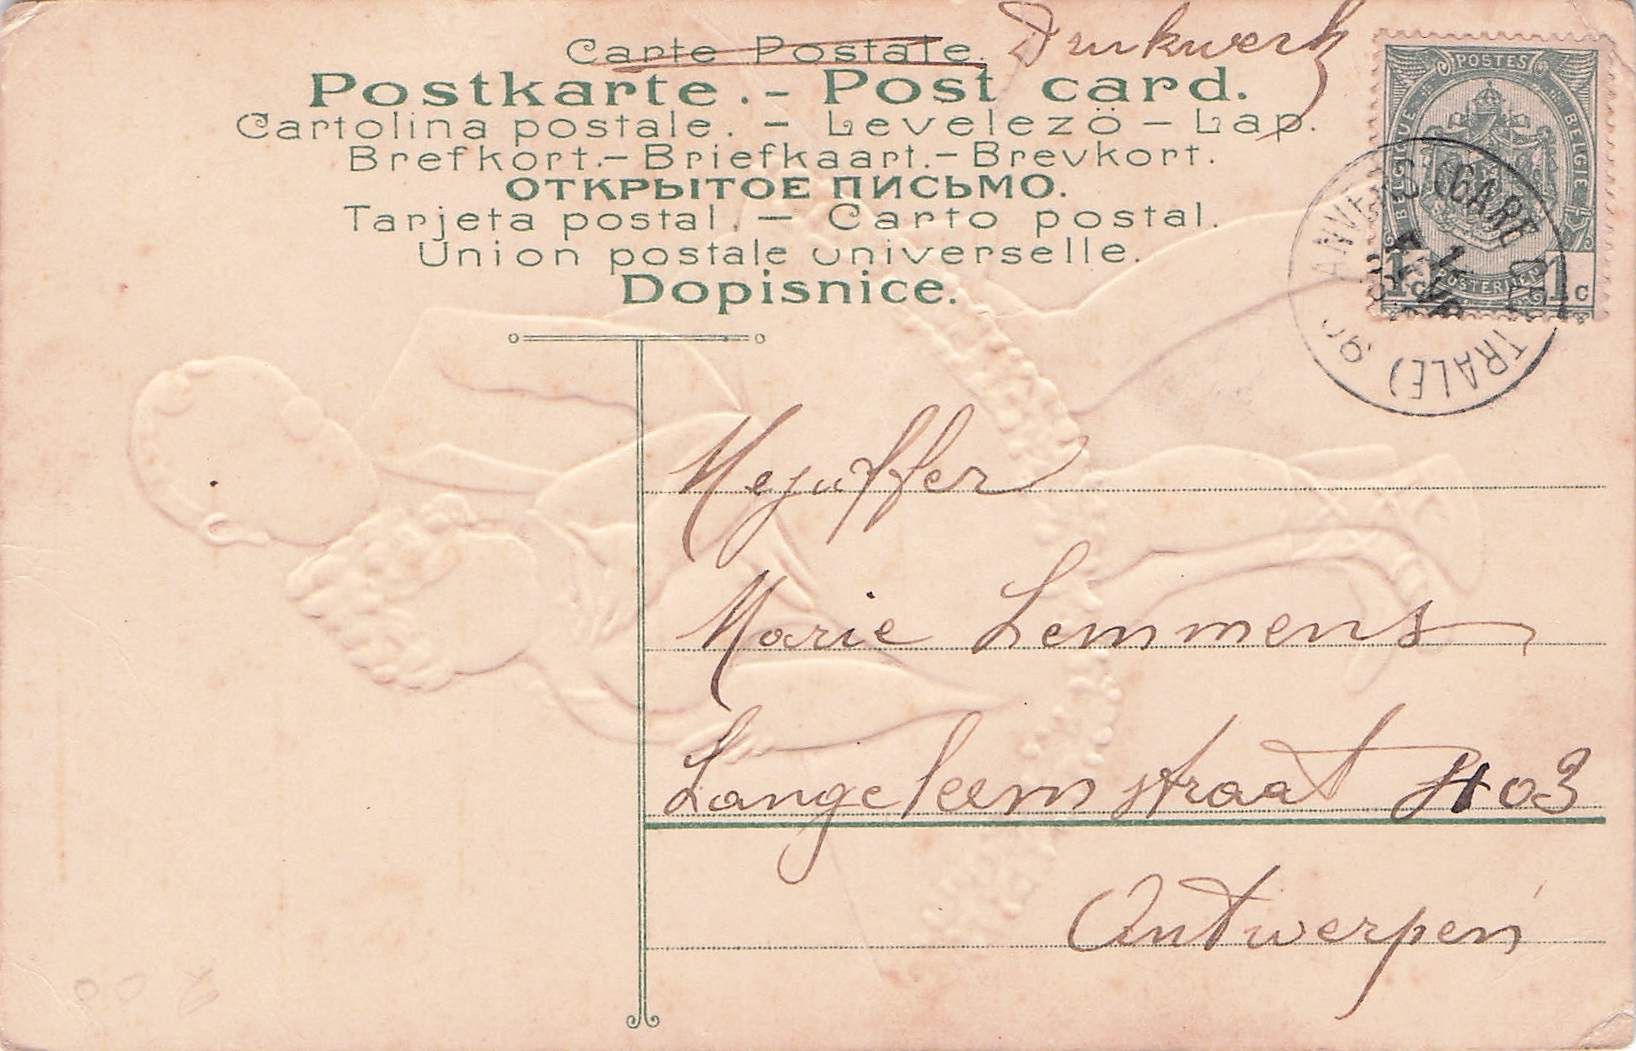 Carte Postale. Drukwerk
Postkarte.- Post card.
Cartolina postale. - Levelezö - Lap.
Brefkort.- Briefkaart.- Brevkort.
ОТКРЫТОЕ ПИСЬМО.
Tarjeta postal. - Carto postal.
Union postale universelle.
Dopisnice.
POSTES
BELGIQUE BELGIE
1c POSTERIJEN 1c
ANVERS (GARE TRALE)
Mejuffer
Marie Lemmens
Langeleemstraat 403
Antwerpen